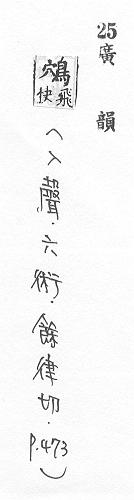 25廣韻
鴥飛快
(入聲.六術.餘律切.P.473)